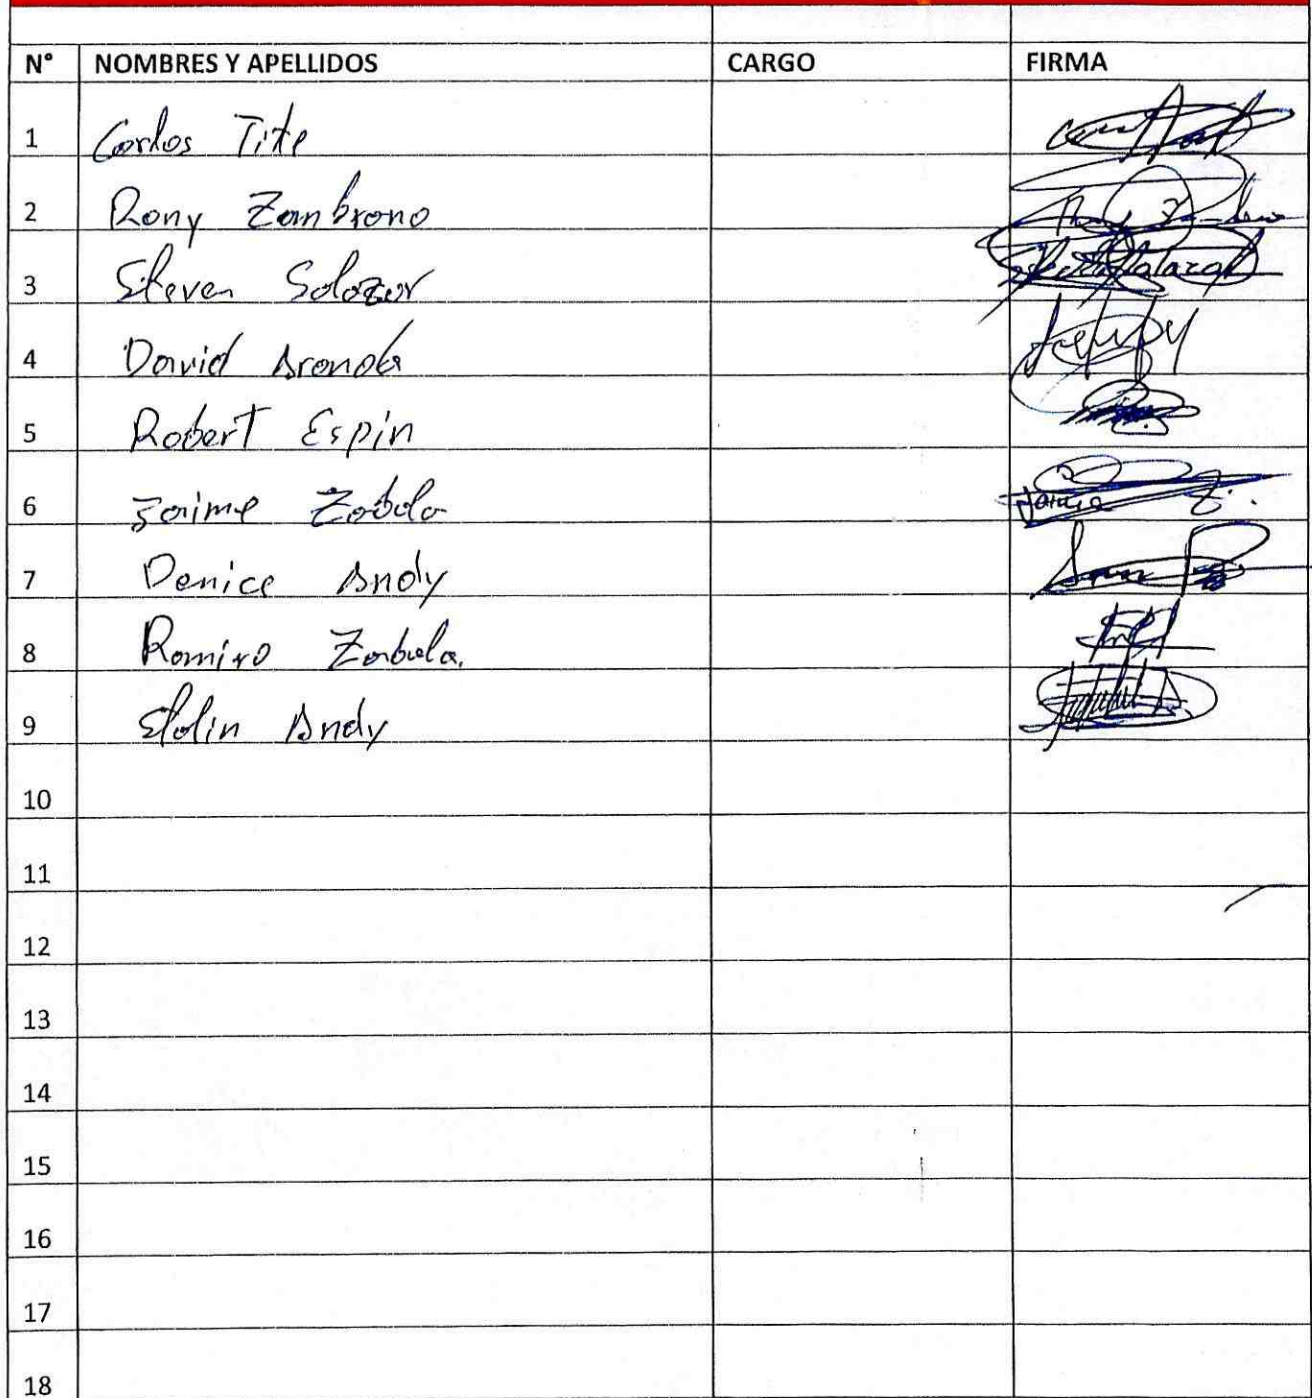 N° NOMBRES Y APELLIDOS CARGO FIRMA
1 Carlos Tite
2 Rony Zambrano
3 Steven Salazar
4 David Aranda
5 Robert Espin
6 Jaime Zabala
7 Denice Andy
8 Ramiro Zabala.
9 Andy
10
11
12
13
14
15
16
17
18